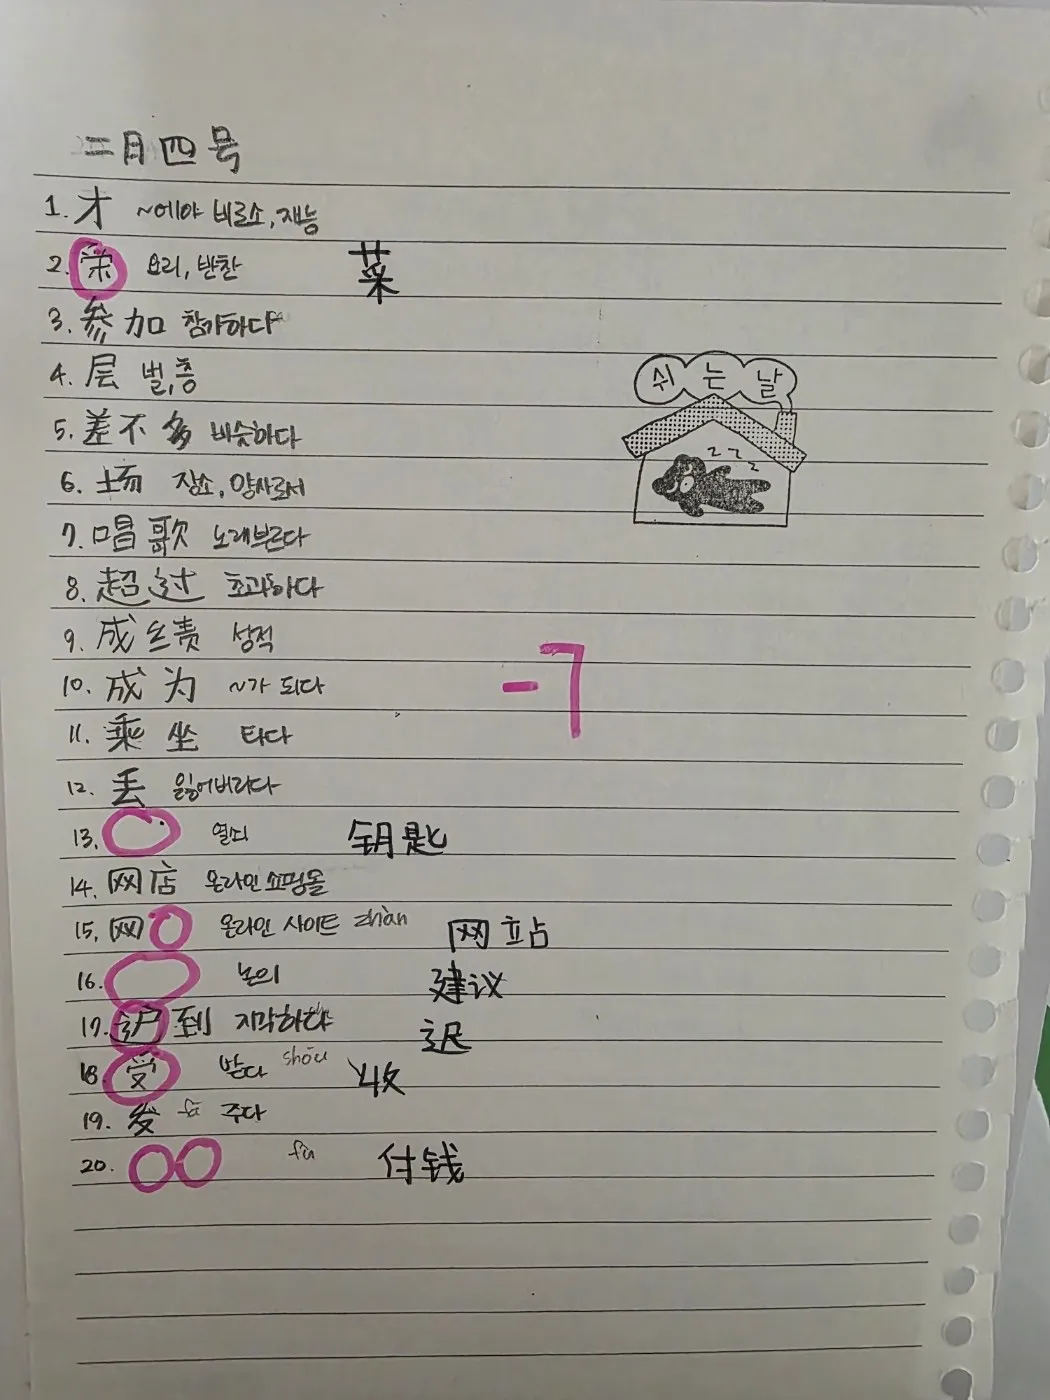 二月四号
1. 才 ~에야 비로소, 재능
2. 요리, 반찬 菜
3. 参加 참가하다
4. 层 벌, 층
쉬는날
5. 差不多 비슷하다
zzz
6. 场 장소, 양사로서
7. 唱歌 노래부르다
8. 超过 초과하다
9. 成绩 성적
-7
10. 成为 ~가 되다
11. 乘坐 타다
12. 丢 잃어버리다
13. 열쇠 钥匙
14. 网店 온라인 쇼핑몰
15. 网 온라인 사이트 zhàn 网站
16. 논의 建议
17. 到 지각하다 迟
18. 受 받다 shōu 收
19. 发 fā 주다
20. fù 付钱